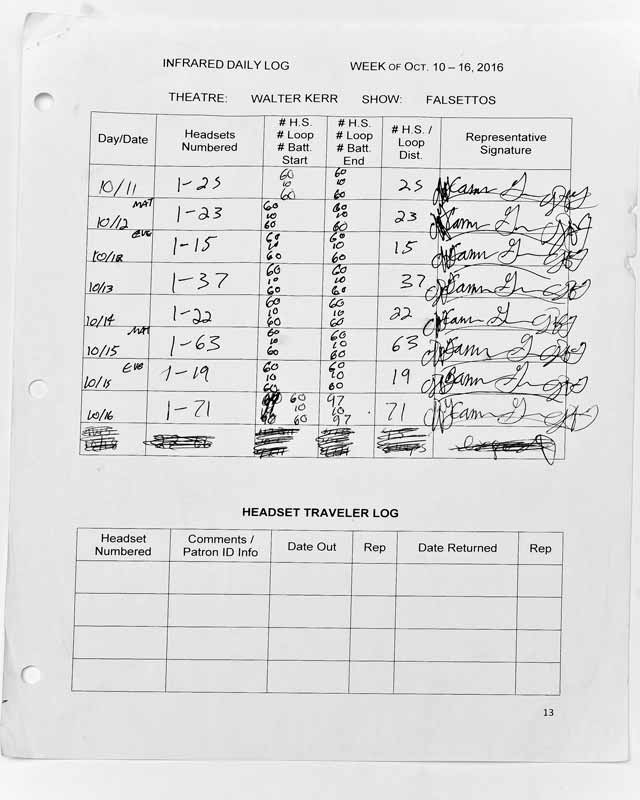 INFRARED DAILY LOG WEEK OF OCT. 10 – 16, 2016
THEATRE: WALTER KERR SHOW: FALSETTOS
Day/Date Headsets Numbered # H.S. # Loop # Batt. Start # H.S. # Loop # Batt. End # H.S. / Loop Dist. Representative Signature
10/11 1-25 60 10 60 60 10 60 25
10/12 MAT 1-23 60 10 60 60 10 60 23
10/12 EVE 1-15 60 10 60 60 10 60 15
10/13 1-37 60 10 60 60 10 60 37
10/14 1-22 60 10 60 60 10 60 22
10/15 MAT 1-63 60 10 60 60 10 60 63
10/15 EVE 1-19 60 10 60 60 10 60 19
10/16 1-71 60 10 60 97 10 97 71
HEADSET TRAVELER LOG
Headset Numbered Comments / Patron ID Info Date Out Rep Date Returned Rep
13